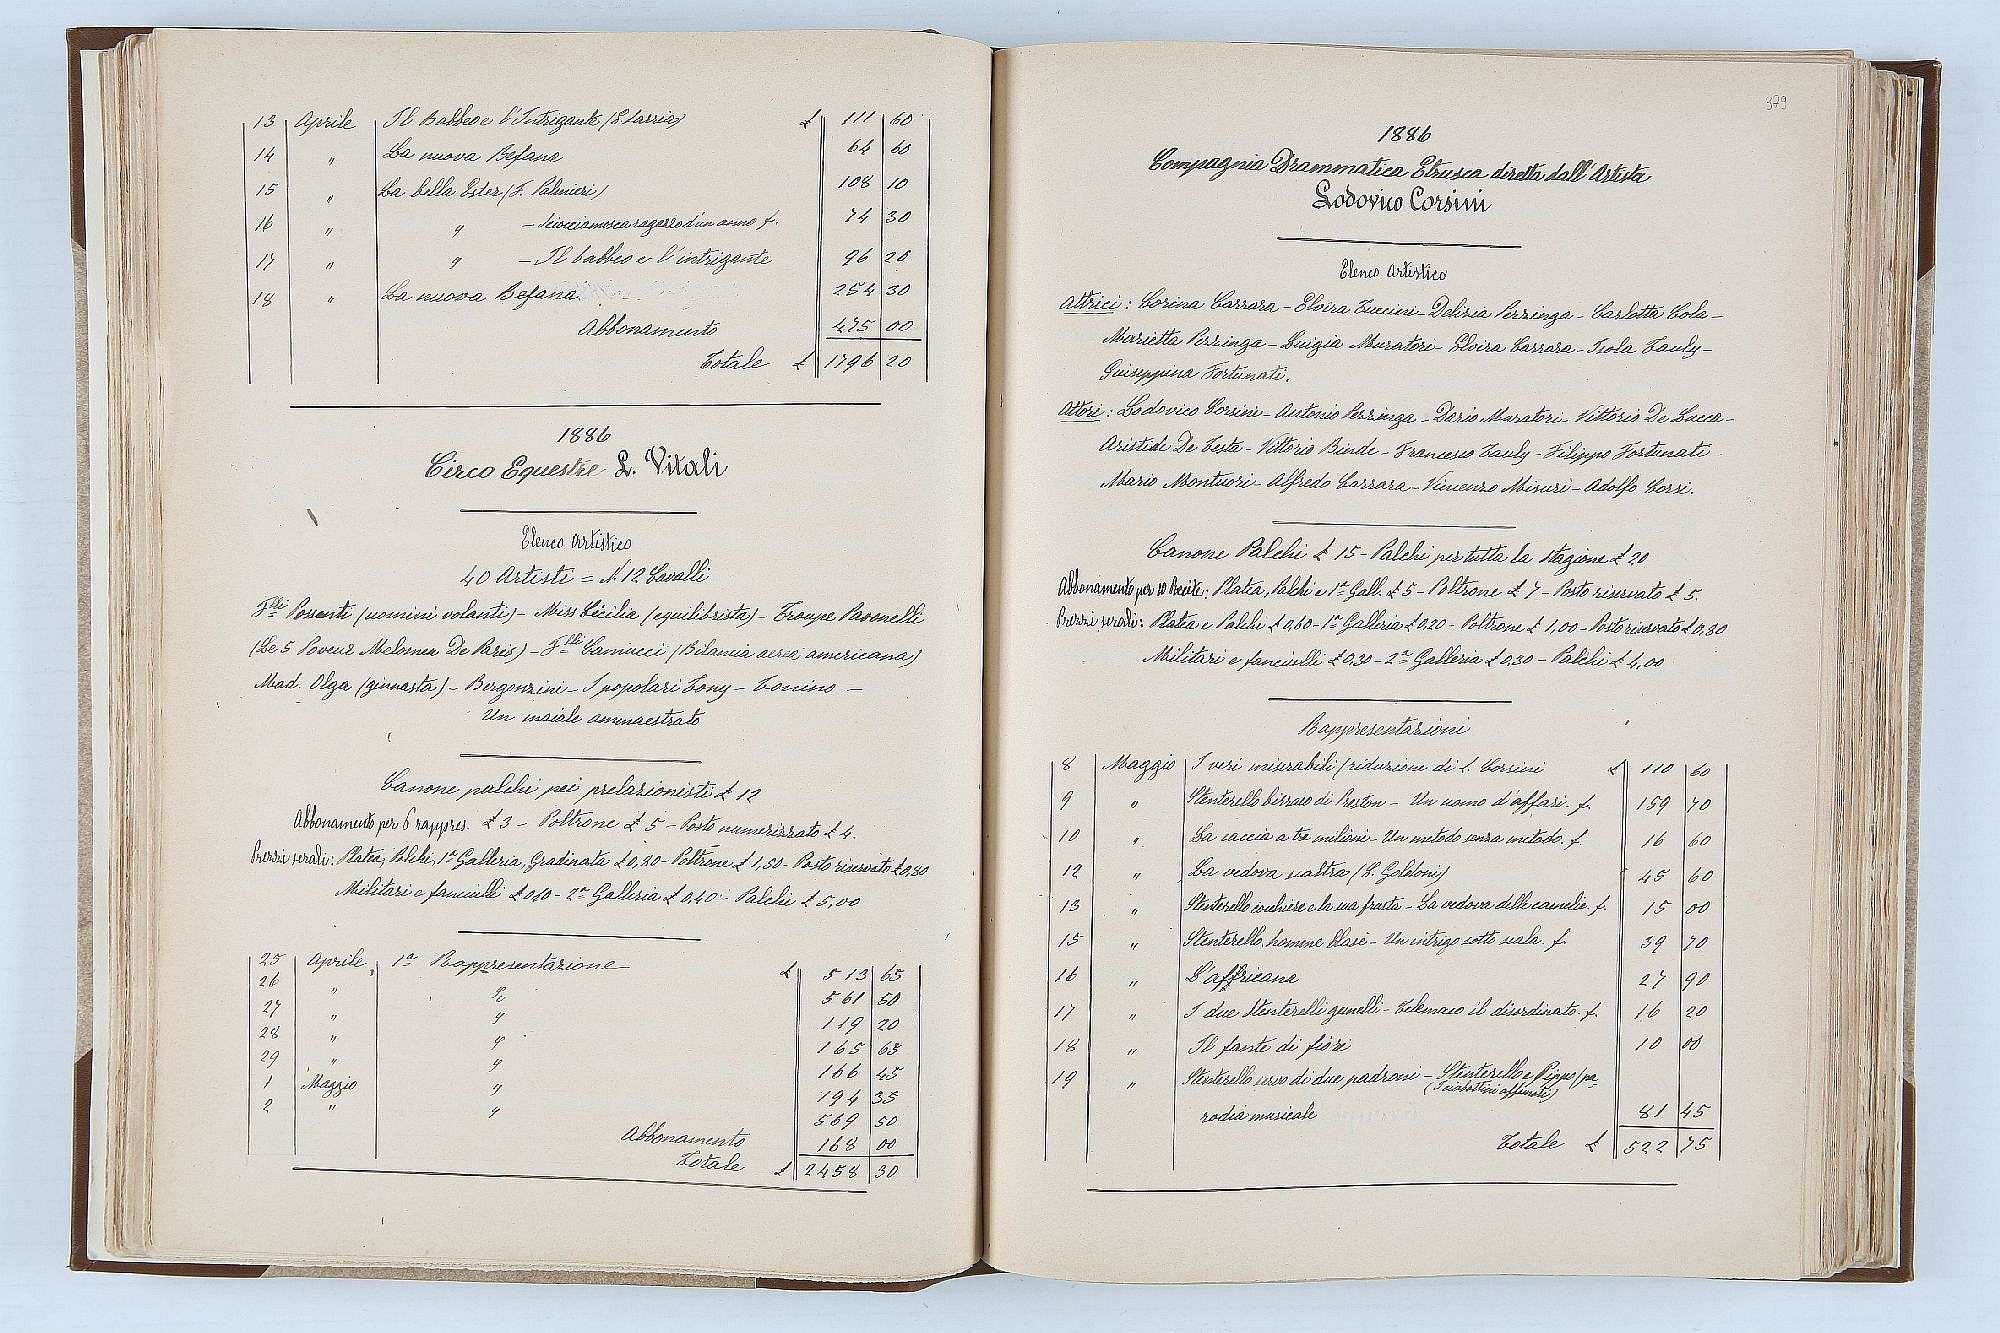 13 Aprile Il Babbeo e l'Intrigante £ 111 60
14 " La nuova Befana 64 60
15 " La bella Ester (F. Palmieri) 108 10
16 " " – Sciosciamosca ragazzo d'un anno f. 74 30
17 " " – Il babbeo e l'intrigante 96 20
18 " La nuova Befana 254 30
Abbonamento 475 00
Totale £ 1796 20
1886
Circo Equestre L. Vitali
Elenco Artistico
40 Artisti = N. 12 Cavalli
F.lli Possenti (uomini volanti) – Miss Cécilia (equilibrista) – Troupe Pavonelli
(Le 5 Melomen De Paris) – F.lli Camucci (Bilancia aerea americana)
Mad. Olga (ginnasta) – Bergonzini – I popolari Tony – Tonino –
Un maiale ammaestrato
Canone palchi pei prelazionisti £ 12
Abbonamento per 6 rappres. £ 3 – Poltrone £ 5 – Posto numerizzato £ 4.
Prezzi serali: Platea, Palchi, 1ª Galleria, Gradinata £ 0,80 – Poltrone £ 1,50 – Posto riservato £ 0,80
Militari e fanciulli £ – 2ª Galleria £ 0,40 – Palchi £ 5,00
25 Aprile 1ª Rappresentazione – £ 513 65
26 " " 561 50
27 " " 119 20
28 " " 165 65
29 " " 166 45
1 Maggio " 194 35
2 " " 569 50
Abbonamento 168 00
Totale £ 2458 30
379
1886
Compagnia Drammatica Etrusca diretta dall'Artista
Lodovico Corsini
Elenco Artistico
Attrici: Corina Carrara – Elvira Tuccini – Delizia Pezzinga – Carlotta Cola –
Marietta Pezzinga – Luigia Muratori – Elvira Carrara – Isola Pauly –
Guiseppina Fortunati.
Attori: Lodovico Corsini – Antonio Pezzinga – Dario Muratori – Vittorio De Lucca –
Aristide De Testa – Vittorio Binde – Francesco Pauly – Filippo Fortunati
Mario Montuori – Alfredo Carrara – Vincenzo Misuri – Adolfo Corsi.
Canone Palchi £ 15 – Palchi per tutta la stagione £ 20
Abbonamento per 10 Recite: Platea, Palchi e 1ª Gall. £ 5 – Poltrone £ 7 – Posto riservato £ 5.
Prezzi serali: Platea e Palchi £ 0,60 – 1ª Galleria £ 0,20 – Poltrone £ 1,00 – Posto riservato £ 0,80
Militari e fanciulli £ 0,30 – 2ª Galleria £ 0,30 – Palchi £ 4,00
Rappresentazioni
8 Maggio I veri miserabili (riduzione di L. Corsini £ 110 60
9 " Stenterello di Preston – Un uomo d'affari. f. 159 70
10 " La caccia a tre milioni – Un metodo senza metodo. f. 16 60
12 " La vedova scaltra (C. Goldoni) 45 60
13 " Stenterello cocchiere e la sua frusta – La vedova delle camelie. f. 15 00
15 " Stenterello, homme blasé – Un intrigo sotto scala. f. 39 70
16 " L'affricana 27 90
17 " I due Stenterelli gemelli – Telemaco il disordinato. f. 16 20
18 " Il fante di fiori 10 00
19 " Stenterello servo di due padroni – Stenterello e Pippo (pa-
(I ciabattini affamati)
rodia musicale 81 45
Totale £ 522 75